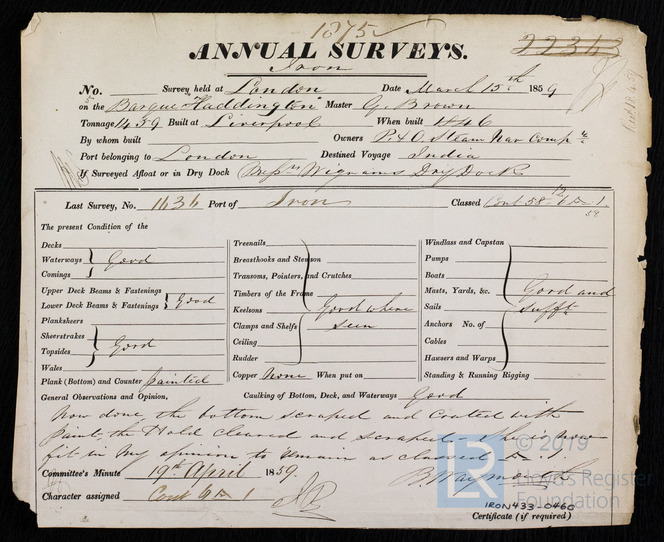 1875
22363
ANNUAL SURVEYS.
Iron
No. Survey held at London Date March 15th 1859
on the Barque "Haddington" Master G. Brown
Tonnage 1459 Built at Liverpool When built 1846
By whom built Owners P. & O. Steam Nav Comp
Port belonging to London Destined Voyage India
If Surveyed Afloat or in Dry Dock Wigrams Dry Dock
Last Survey, No. 1636 Port of Iron Classed Cont 58
The present Condition of the
Decks
Waterways Good
Comings
Upper Deck Beams & Fastenings
Lower Deck Beams & Fastenings Good
Planksheers
Sheerstrakes
Topsides Good
Wales
Plank (Bottom) and Counter painted
Treenails
Breasthooks and Stemson
Transoms, Pointers, and Crutches
Timbers of the Frame
Keelsons Good where
Clamps and Shelfs seen
Ceiling
Rudder
Copper None When put on
Windlass and Capstan
Pumps
Boats
Masts, Yards, &c. Good and
Sails sufft
Anchors No. of
Cables
Hawsers and Warps
Standing & Running Rigging
General Observations and Opinion, Caulking of Bottom, Deck, and Waterways Good
Now done, the bottom scraped and coated with
paint, the Hold cleared and scraped - She is now
fit in my opinion to remain as classed
Committee's Minute 19th April 1859.
B. Waymouth
Character assigned Cont 1
© 2019
Lloyd's Register
Foundation
IRON433-0460
Certificate (if required)